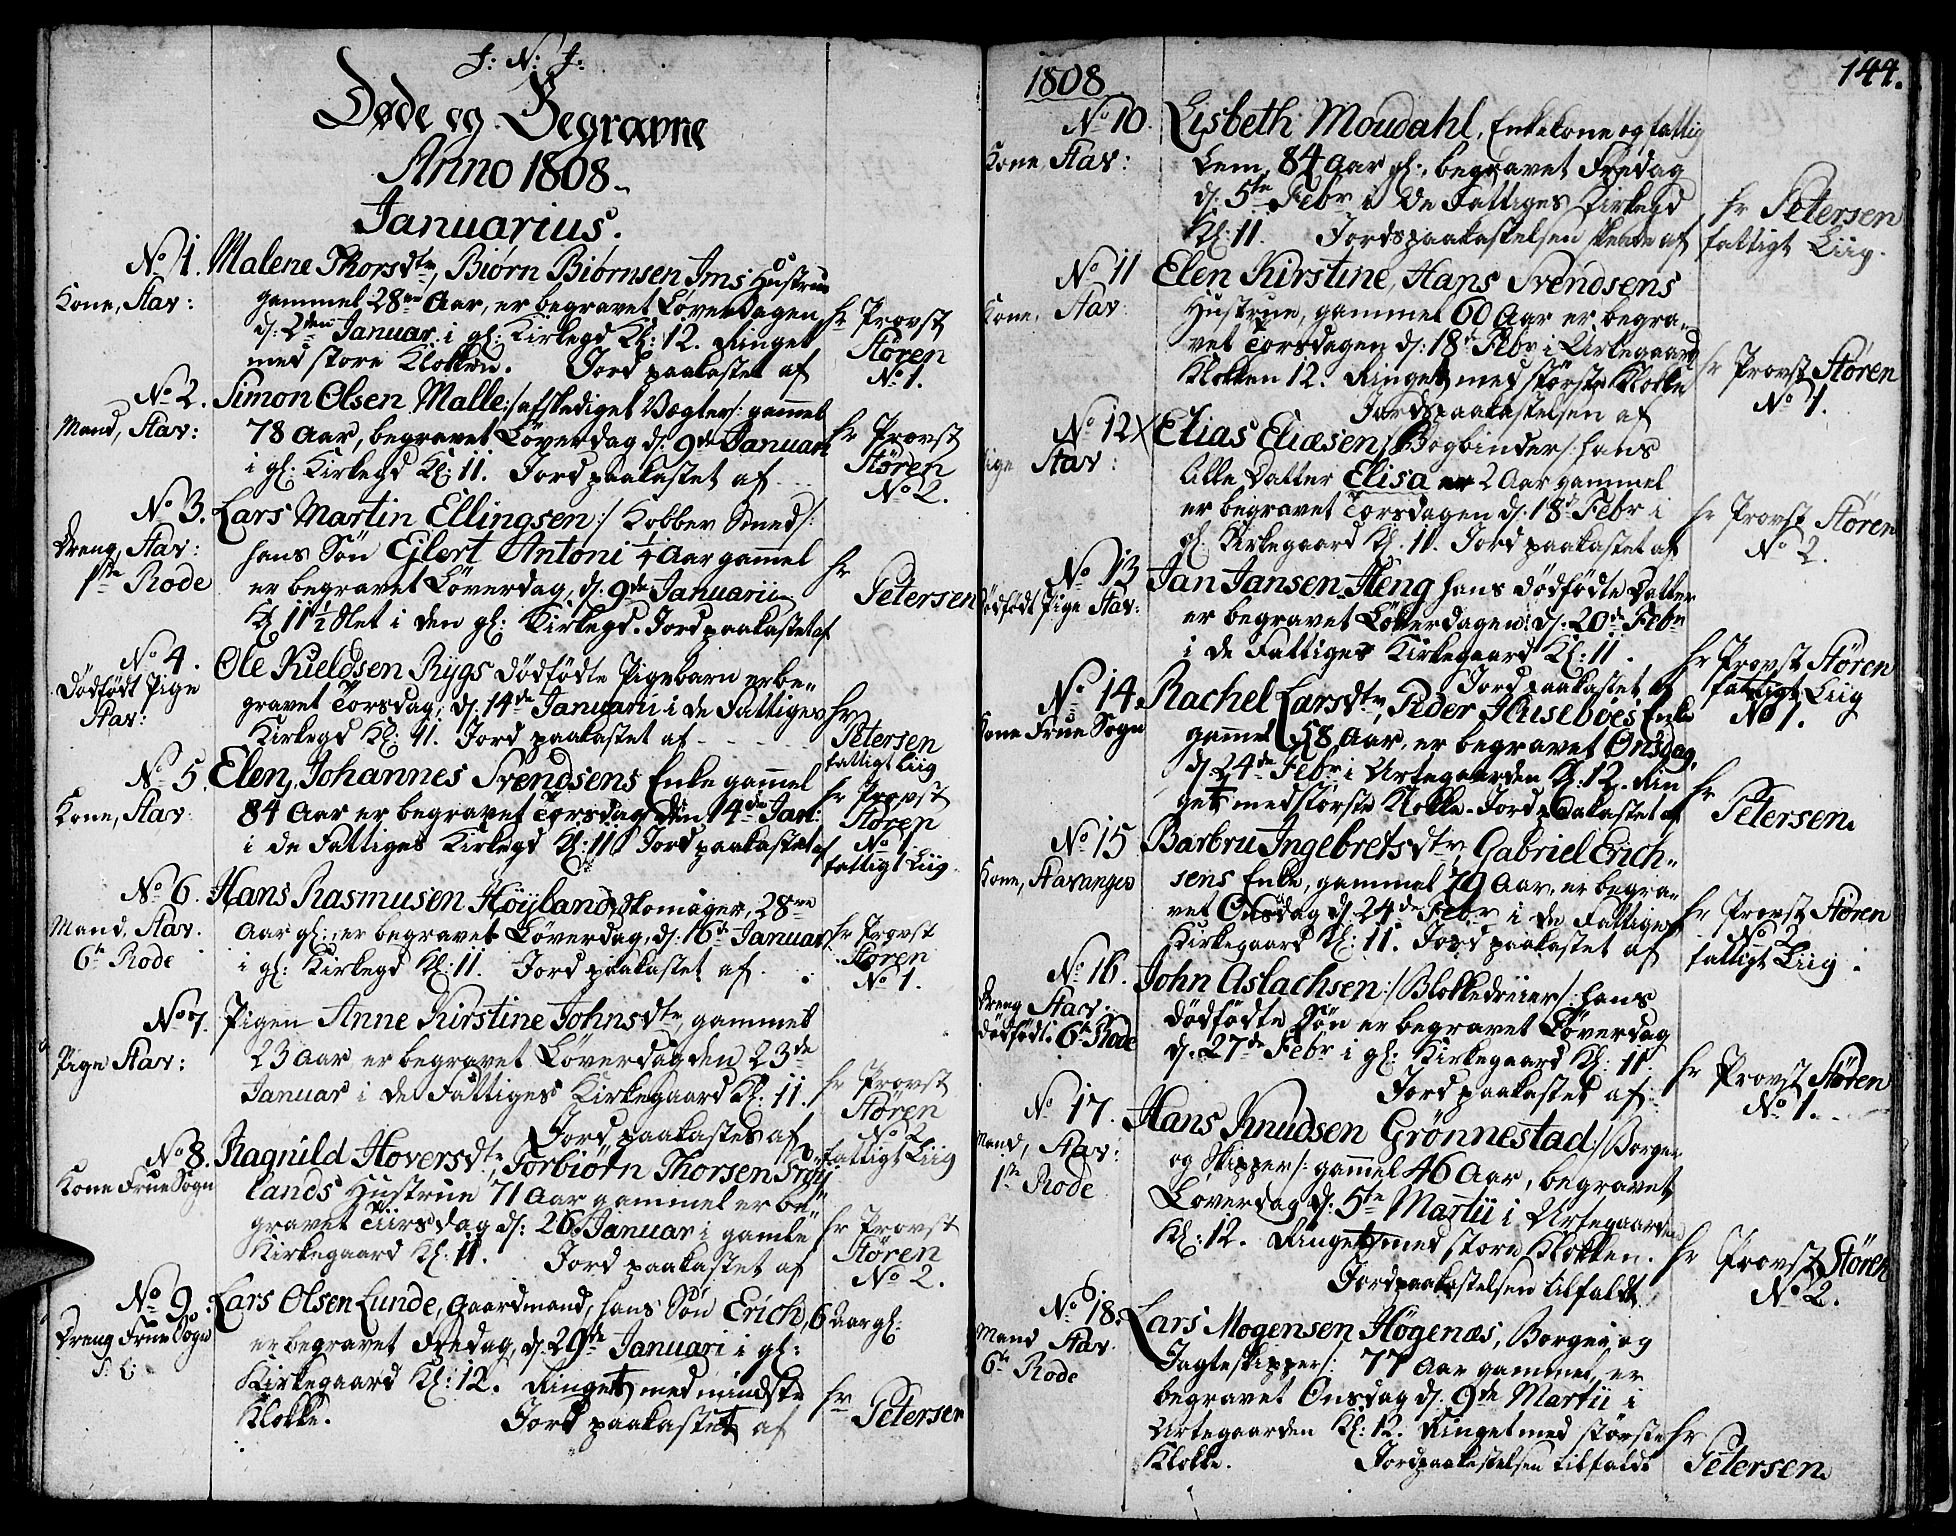 J: N: J:
Døde og Begravne
Anno 1808.
Januarius.
No 1. Malene Thorsdtr, Biørn Biørnsen Ims Hustrue
Kone, Stav: gammel 28 Aar, er begravet Løverdagen
d: 2den Januar i gl: Kirkegd Kl: 12. Ringet
med store Klokken. Jord paakastet af
hr Provst
Støren
No 1.
No 2. Simon Olsen Malle :/ afskediget Vægter /: gammel
Mand, Stav: 78 Aar, begravet Løverdag d: 9de Januari
i gl: Kirkegd Kl: 11. Jord paakastet af
hr Provst
Støren
No 2.
No 3. Lars Martin Ellingsen :/ Kobber Smed /:
Dreng, Stav: hans Søn Ejlert Antoni 1/4 Aar gammel
1ste Rode er begravet Løverdag, d: 9de Januarii
Kl 11 1/2 Slet i den gl: Kirkegd. Jord paakastet af
hr
Petersen
No 4. Ole Kieldsen Rygs dödfödte Pigebarn er be-
Dödfödt Pige gravet Torsdag, d: 14de Januarii i de Fattiges
Stav: Kirkegd Kl: 11. Jord paakastet af
hr
Petersen
fattigt Liig
No 5. Elen, Johannes Svendsens Enke gammel
Kone, Stav: 84 Aar er begravet Torsdag den 14de Jan:
i de Fattiges Kirkegd Kl: 11 Jord paakastet af
hr Provst
Støren
No 1.
fattigt Liig.
No 6. Hans Rasmusen Höyland, Skomager, 28
Mand, Stav. Aar gl:, er begravet Løverdag, d: 16de Januar
6te Rode i gl: Kirkegd Kl: 11. Jord paakastet af
hr Provst
Støren
No 1.
No 7. Pigen Anne Kirstine Johnsdtr, gammel
Pige Stav: 23 Aar, er begravet Løverdag den 23de
Januar i de Fattiges Kirkegaard Kl: 11.
Jord paakastet af
hr Provst
Støren
No 2
fattigt Liig
No 8. Ragnild Hoversdtr, Torbiörn Thorsen
Kone Frue Sogn lands Hustrue 71 Aar gammel er be-
gravet Tiirsdag d: 26 Januar i gamle
Kirkegaard Kl: 11. Jord paakastet af
hr Provst
Støren
No 2.
No 9. Lars Olsen Lunde, Gaardmand, hans Søn Erich, 6 Aar gl:
Dreng Frue Sogn er begravet Fredag, d: 29de Januari i gl:
Kirkegaard Kl: 12. Ringet med mindste
Klokke. Jord paakastet af
hr
Petersen
1808 144.
No 10. Lisbeth Moudahl, Enkekone og fattig
Kone, Stav: Lem, 84 Aar gl:, begravet Fredag
d: 5te Febr i De Fattiges Kirkegd
Kl: 11. Jordspaakastelsen skeede af
hr Petersen
fattigt Liig.
No 11 Elen Kirstine, Hans Svendsens
Kone, Stav Hustrue, gammel 60 Aar er begra-
vet Torsdagen d: 18de Febr i Urtegaard
Klokken 12. Ringet med störste Klokke
Jordspaakastelsen af
hr Provst Støren
No 1.
No 12 X Elias Eliasen :/ Bogbinder /: hans
Pige Stav: Datter Elisa 2 Aar gammel
er begravet Torsdagen d: 18de Febr i
gl: Kirkegaard Kl: 11. Jord paakastet af
hr Provst Støren
No 2.
No 13 Jan Jansen Steng hans dödfödte Datter
dödfödt Pige Stav: er begravet Løverdagen d: 20de Febr
i de Fattiges Kirkegaard Kl: 11.
Jord paakastet af
hr Provst Støren
fattigt Liig
No 1.
No 14. Rachel Larsdtr, Peder Husebøes Enke
Kone Frue Sogn gammel 58 Aar, er begravet Onsdag,
d: 24de Febr i Urtegaarden Kl: 12. Rin
get med störste Klokke. Jord paakastet af
hr
Petersen.
No 15 Barbru Ingebretsdtr, Gabriel Erich-
Kone, Stavanger sens Enke, gammel 79 Aar, er begra-
vet Onsdag d: 24de Febr i de Fattiges
Kirkegaard Kl: 11. Jord paakastet af
hr Provst Støren
No 2
fattigt Liig.
No 16. John Aslachsen :/ Blokkedreier /: hans
Dreng Stav: dödfödte Søn er begravet Løverdag
dödfödt. 6te Rode d: 27de Febr i gl: Kirkegaard Kl: 11.
Jord paakastet af
hr Provst Støren
No 1.
No 17. Hans Knudsen Grønnestad :/ Borger
Mand, Stav: og Skipper /: gammel 46 Aar, begravet
1ste Rode Løverdag d: 5te Martii i Urtegaarden
Kl: 12. Ringet med store Klokken.
Jordpaakastelsen tilfaldt
hr Provst Støren
No 2.
No 18. Lars Mogensen Högenæs, Borger og
Mand Stav. Jagteskipper /: 77 Aar gammel, er
6te Rode begravet Onsdag d: 9de Martii i
Urtegaarden Kl: 12. Ringet med störste
Klokke. Jordpaakastelsen tilfaldt
hr
Petersen.